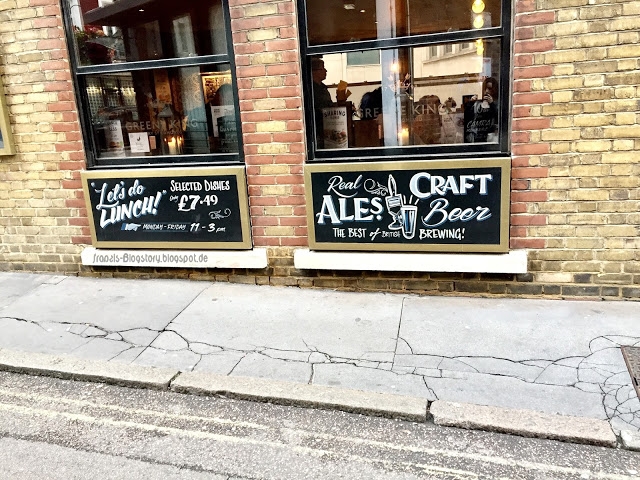 GREENE KING
GREENE KING
"Let's do
LUNCH!"
SELECTED DISHES
Only
£7.49
MONDAY - FRIDAY 11 - 3pm
Real
ALES
&
CRAFT
Beer
THE BEST of BRITISH BREWING!
franzis-Blogstory.blogspot.de